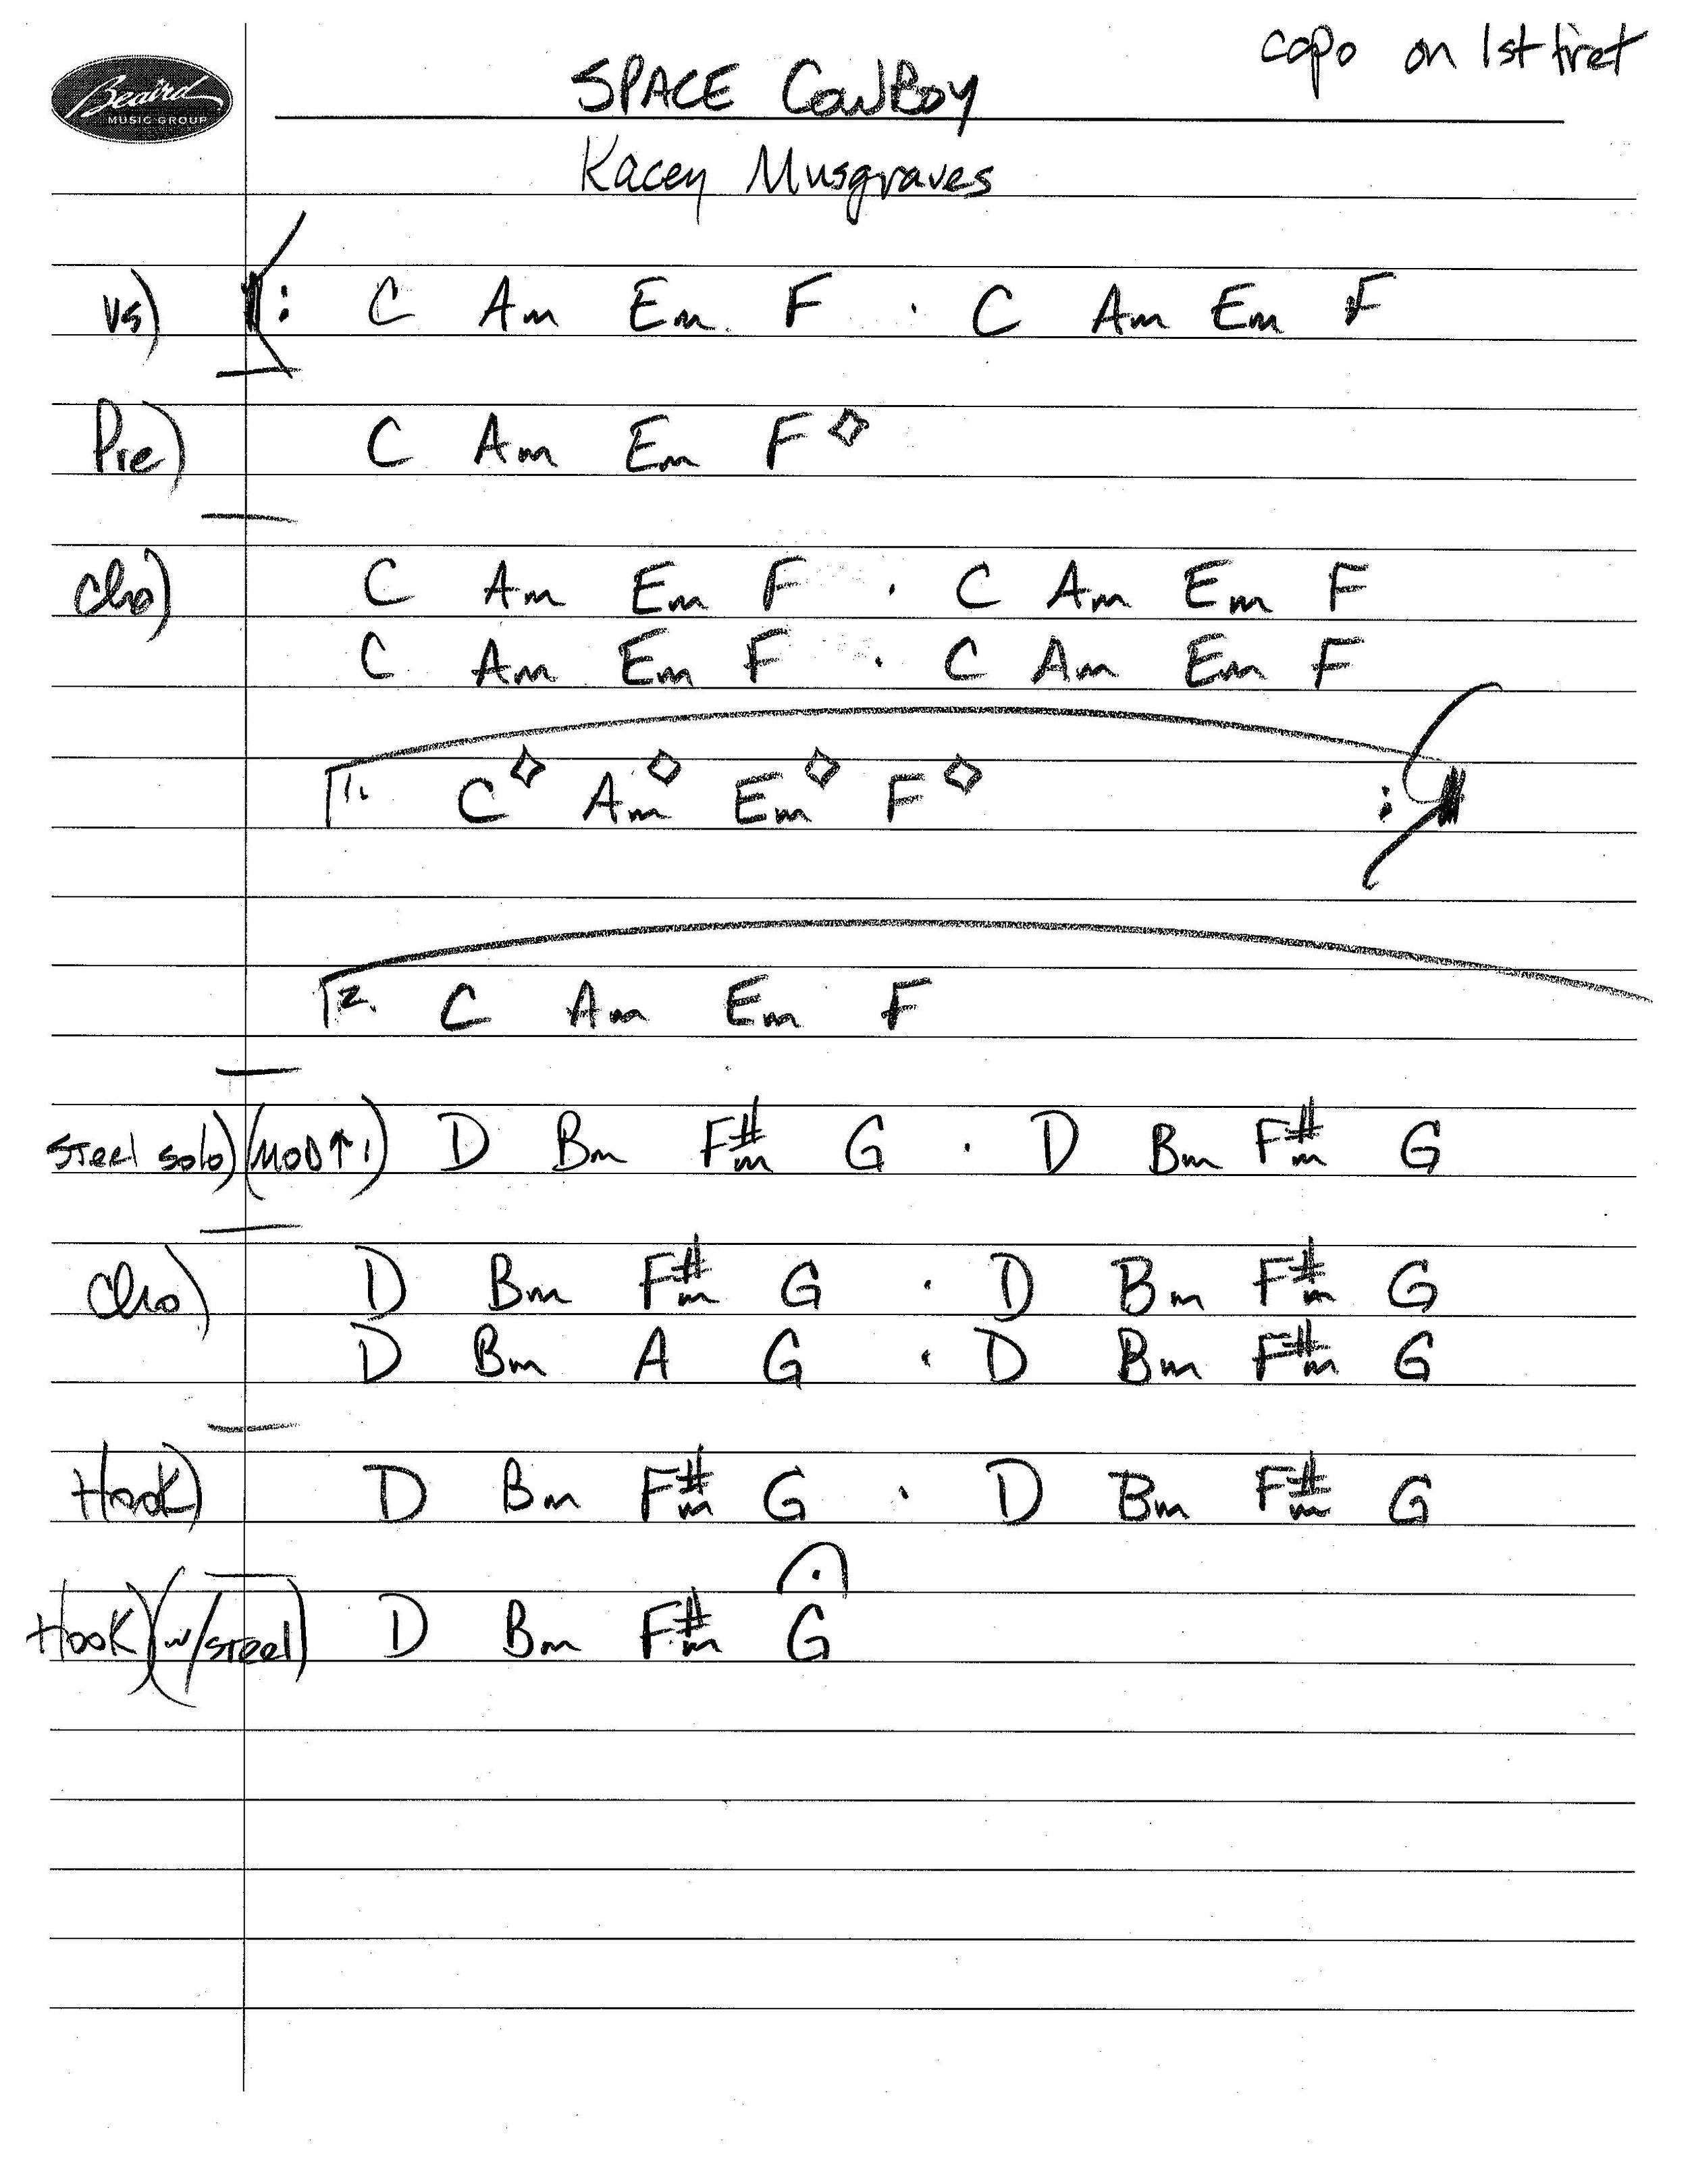 copo on 1st fret
Beaird
MUSIC GROUP
SPACE COWBOY
Kacey Musgraves
Vs) 𝄆 C Am Em F · C Am Em F
Pre) C Am Em F◇
Cho) C Am Em F · C Am Em F
C Am Em F · C Am Em F
1. C◇ Am◇ Em◇ F◇ 𝄇
2. C Am Em F
STeel solo) (MOD↑1) D Bm F#m G · D Bm F#m G
Cho) D Bm F#m G · D Bm F#m G
D Bm A G · D Bm F#m G
Hook) D Bm F#m G · D Bm F#m G
Hook) (w/STeel) D Bm F#m G𝄐